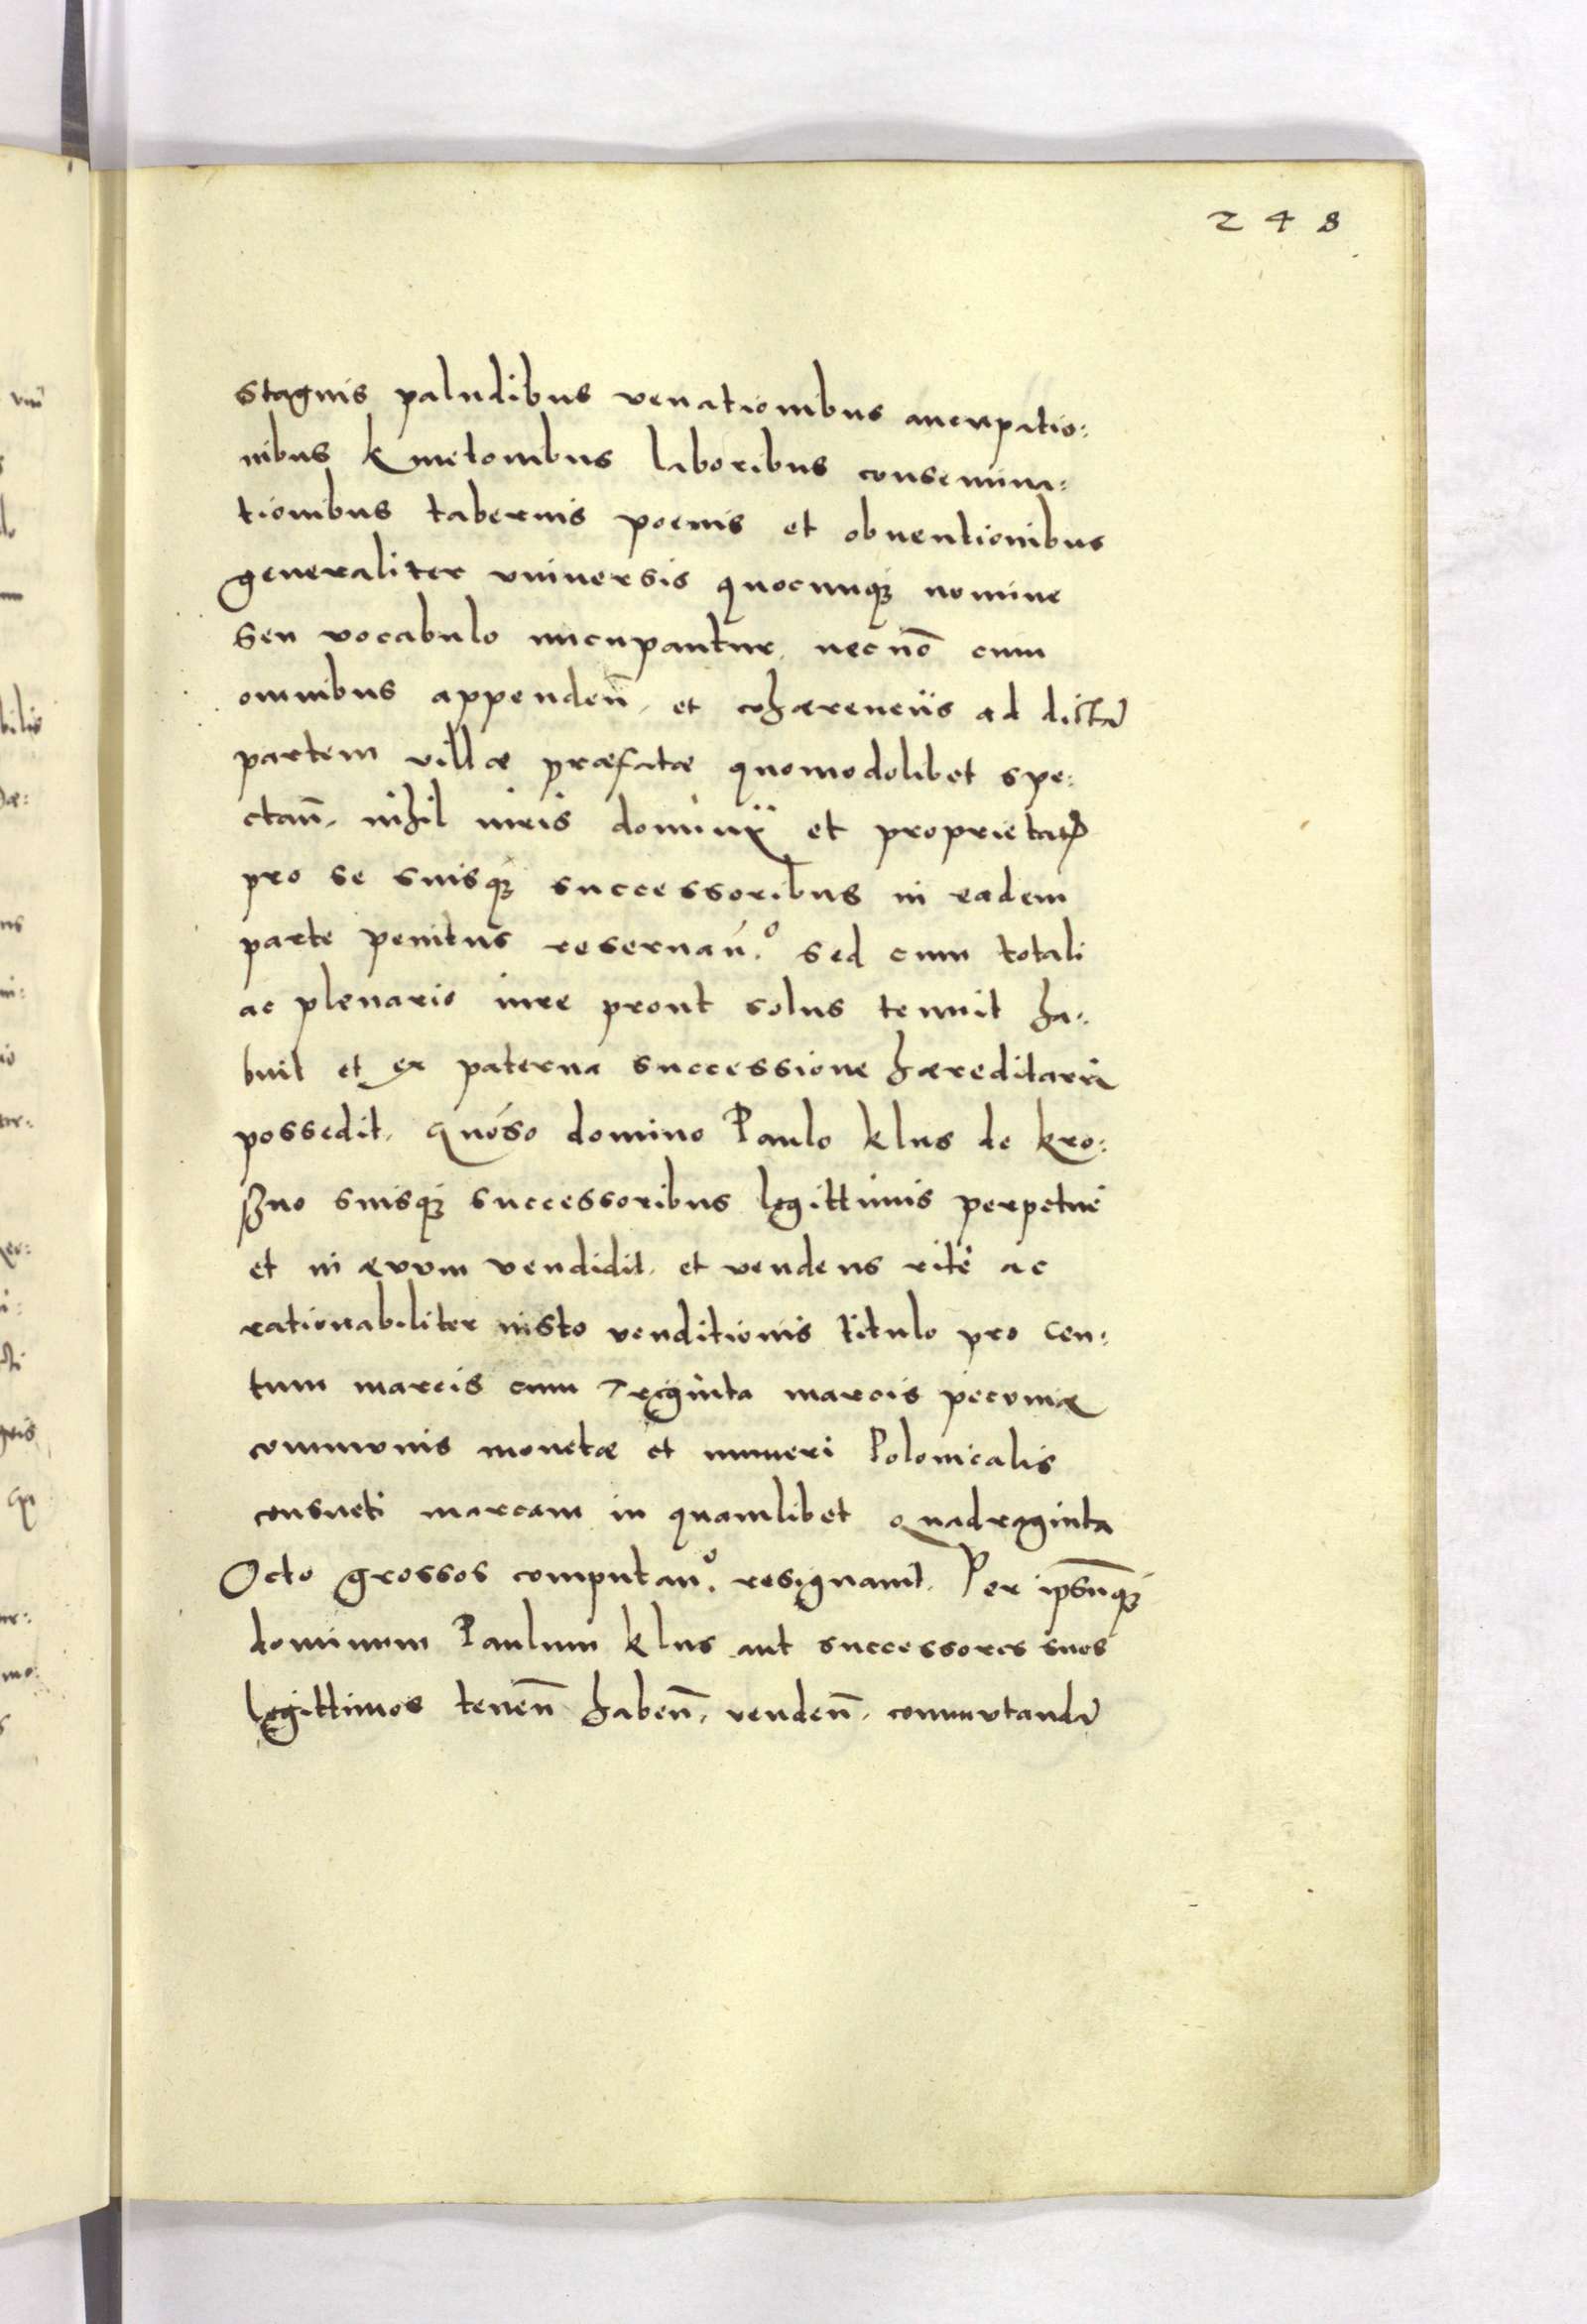 248
stagnis paludibus venationibus aucupatio:
nibus kmetonibus laboribus consemina:
tionibus tabernis poenis et obuentionibus
generaliter vniuersis quocunq; nomine
seu vocabulo nūcupantur, necnō cum
omnibus appendeñ, et cohærenciis ad dictā
partem villæ præfatæ quomodolibet spe:
ctañ, nihil iuris dominÿ et proprietatꝭ
pro se suisq; successoribus in eadem
parte penitus reseruań.° sed cum totali
ac plenario iure prout solus tenuit ha:
buit et ex paterna successione hæreditaria
possedit, domino Paulo klus de kro:
szno suisq; successoribus legittimis perpetuè
et in æuum vendidit, et vendens ritè ac
rationabiliter iusto venditionis titulo pro cen:
tum marcis cum Triginta marcis pecuniæ
communis monetæ et numeri Polonicalis
consueti marcam in quamlibet Quadraginta
Octo grossos computań.° resignauit, Per ipsūq;
dominum Paulum klus aut successores suos
legittimos teneñ habeñ, vendeñ, commutandā